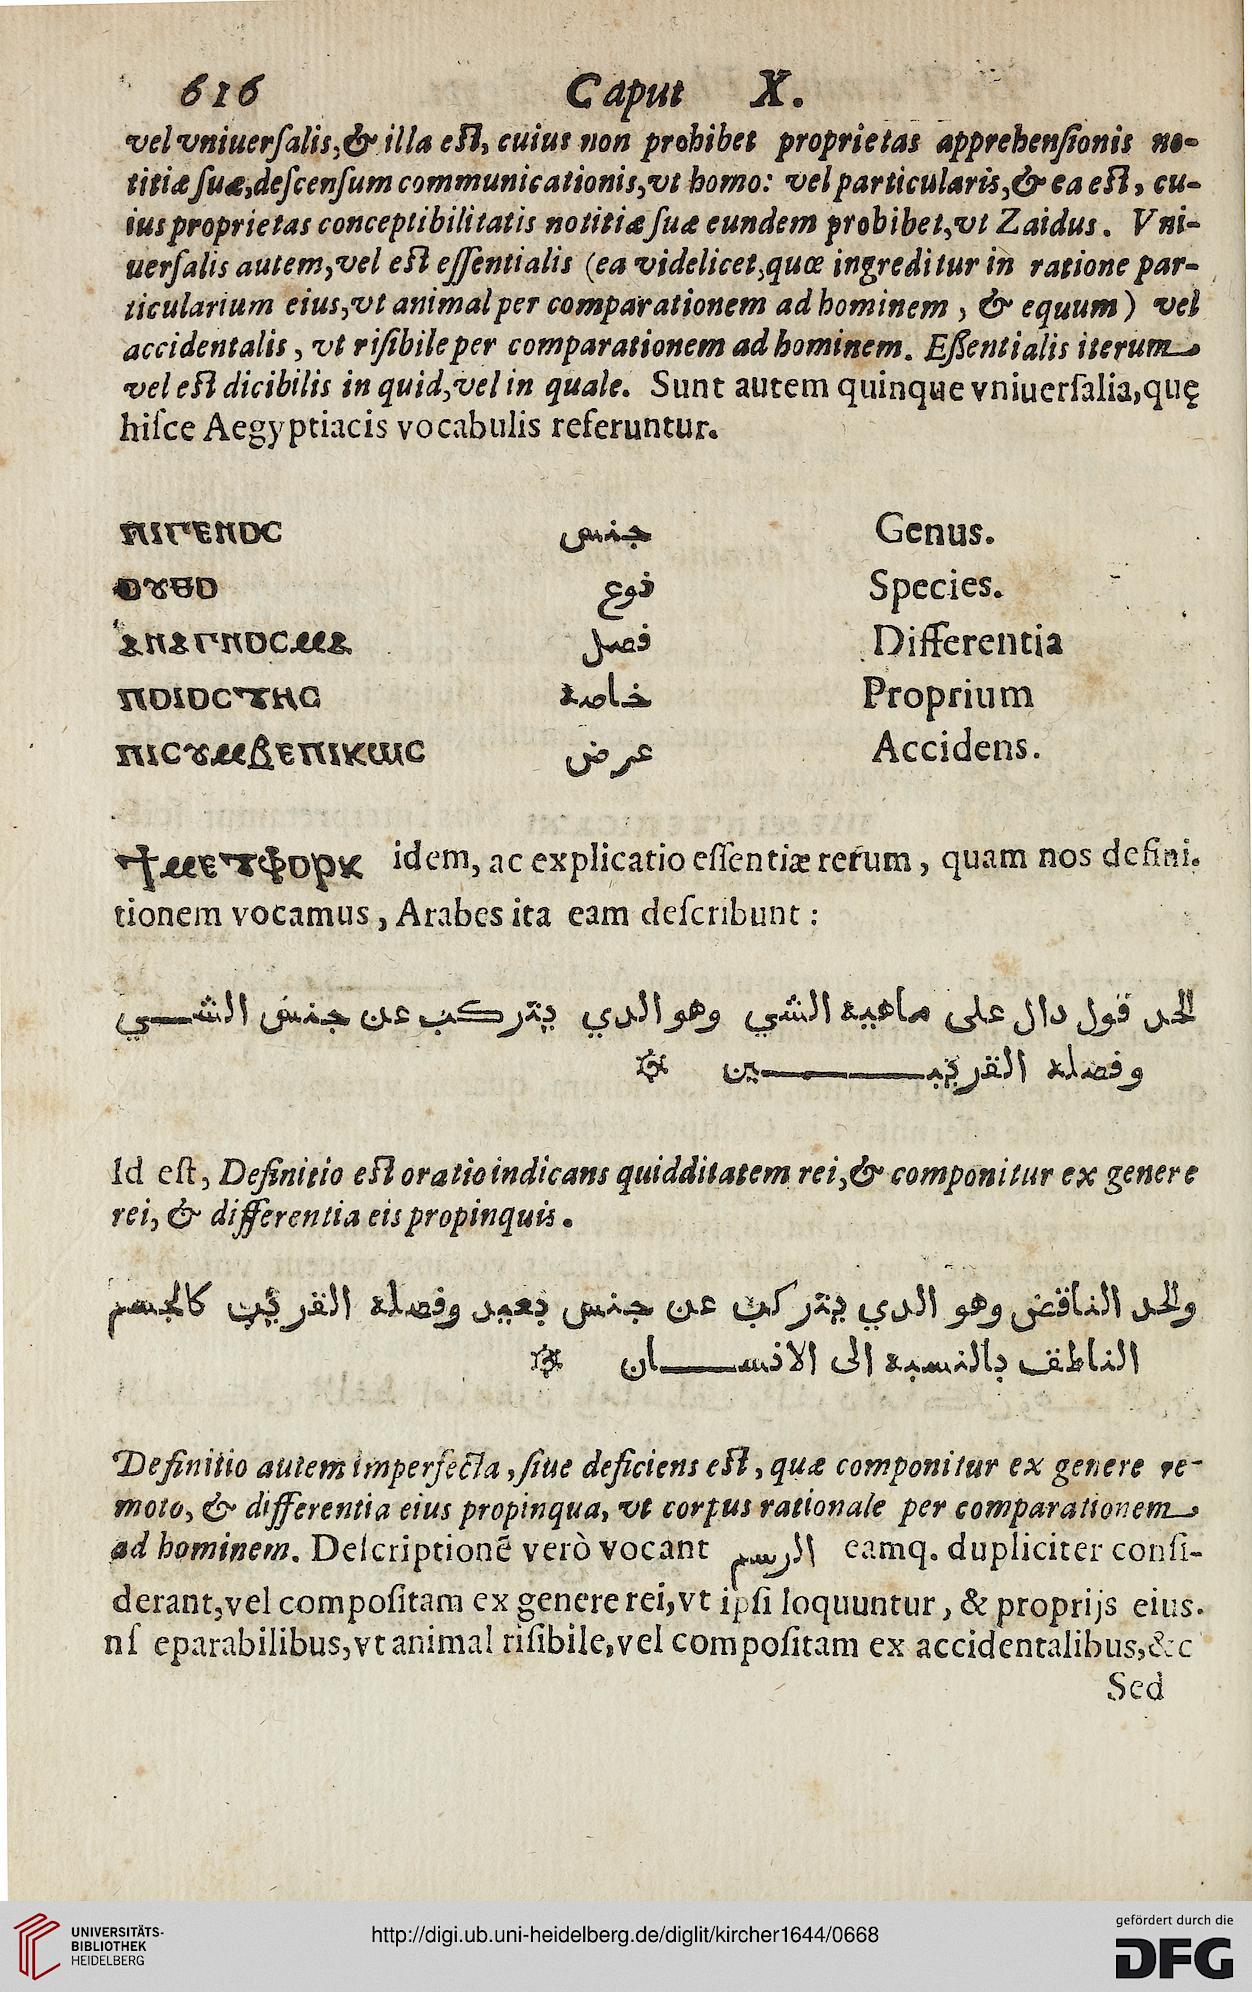 616 Caput X.
vel vniuerſalis,& illa eſt, cuius non prohibet proprietas apprehenſionis no-
titiæ ſuæ,deſcenſum communicationis,vt homo: vel particularis,& ea eſt, cu-
ius proprietas conceptibilitatis notitiæ ſuæ eundem prohibet,vt Zaidus. Vni-
uerſalis autem,vel eſt eſſentialis (ea videlicet,quæ ingreditur in ratione par-
ticularium eius,vt animal per comparationem ad hominem , & equum) vel
accidentalis , vt riſibile per comparationem ad hominem. Eſſentialis iterum
vel eſt dicibilis in quid,vel in quale. Sunt autem quinque vniuerſalia,quę
hiſce Aegyptiacis vocabulis referuntur.
ⲡⲓⲅⲉⲛⲟⲥ جنس Genus.
ⲟⲩⲑⲟ نوع Species.
ⲁⲛⲁⲅⲛⲟⲥⲙⲁ فصل Differentia
ⲡⲟⲓⲟⲥⲧⲏⲥ خاصة Proprium
ⲡⲓⲥⲩⲙⲃⲉⲡⲓⲕⲱⲥ عرض Accidens.
ϯⲙⲉⲧⲫⲟⲣⲕ idem, ac explicatio eſſentiæ rerum , quam nos defini.
tionem vocamus , Arabes ita eam deſcribunt :
الحد قول دال على ماهيه الشي وهو الدي يتركب عن جنس الشــي
وفصله القريبــــين
Id eſt, Definitio eſt oratio indicans quidditatem rei,& componitur ex genere
rei, & differentia eis propinquis .
والحد الناقض وهو الدي يتركب عن جنس بعيد وفصله القريب كالجسم
الناطف بالنسبه الى الانســـان
Definitio autem imperfecta , ſiue deficiens eſt , quæ componitur ex genere re-
moto, & differentia eius propinqua, vt corpus rationale per comparationem
ad hominem. Deſcriptionẽ verò vocant الرسم eamq. dupliciter conſi-
derant,vel compoſitam ex genere rei,vt ipſi loquuntur , & proprijs eius.
nſ eparabilibus,vt animal riſibile,vel compoſitam ex accidentalibus,&c
Sed
UNIVERSITÄTS-
BIBLIOTHEK
HEIDELBERG
http://digi.ub.uni-heidelberg.de/diglit/kircher1644/0668
gefördert durch die
DFG